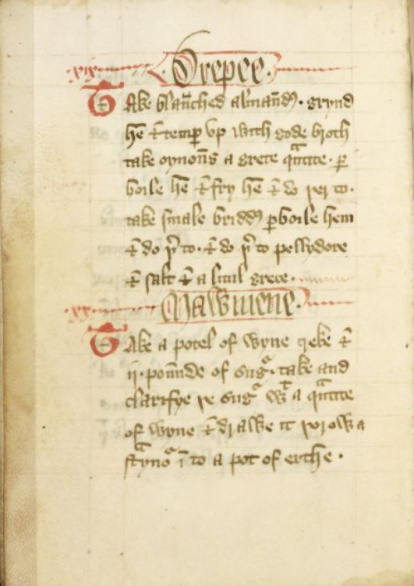 .xix. Drepee.
Take blaūched almand₉. grynd
hē & temp̲ vp with gode broth
take oynoūs a grete q̄ntite. p̲
boile hē & fry hē & do þer to.
take smale bridd₉ p̲boile hem
& do þ̲ to. & do þ̲ to pellydore
& salt & a litul grece.
.xx. Mawmene.
Take a potel of wyne greke &
ii. poūnde of sug̲. take and
clarifye þe sug̲ wᵗ a q̄ntite
of wyne & drawe it þorow a
stȳno̲ ī to a pot of erthe.